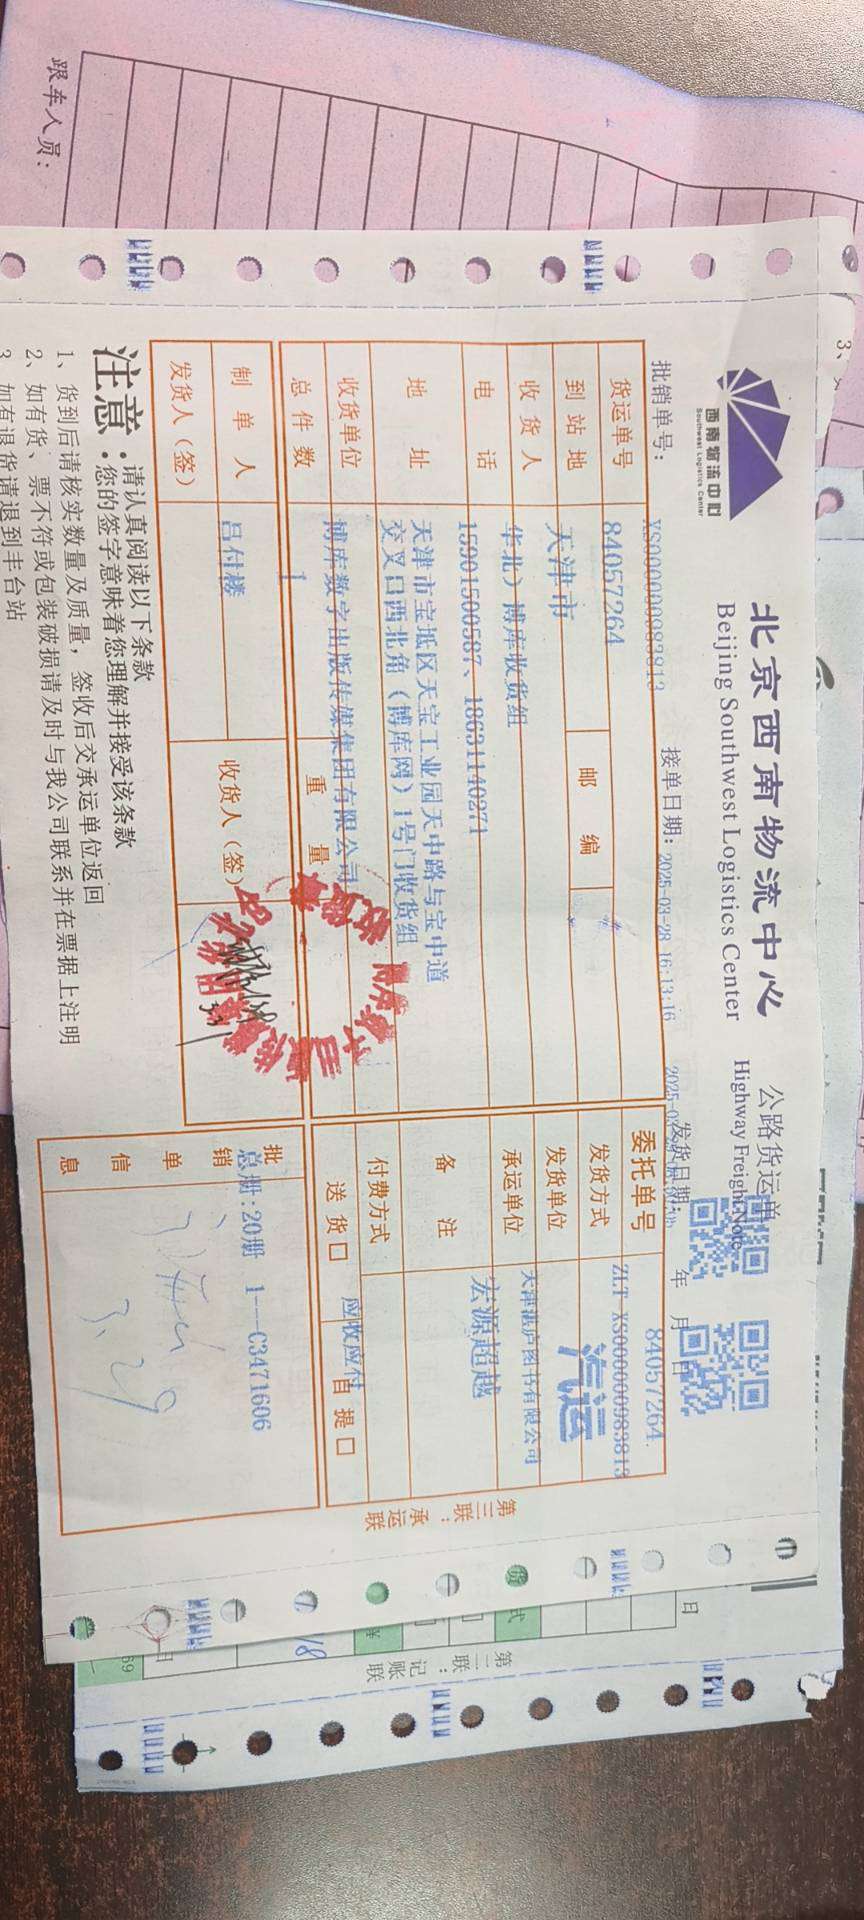 跟车人员：
西南物流中心
Southwest Logistics Center
北京西南物流中心
Beijing Southwest Logistics Center
公路货运单
Highway Freight Note
批销单号：
XS000000983813
接单日期：2025-03-28 16:13:16
发货日期：
年 月 日
货运单号 84057264
委托单号 84057264
ZLT-XS000000983813
到站地 天津市
邮编
发货方式 汽运
收货人 华北）博库收货组
发货单位 天津湛庐图书有限公司
电话 15901500587、18631140271
承运单位 宏源超越
地址 天津市宝坻区天宝工业园天中路与宝中道
交叉口西北角（博库网）1号门收货组
备注
收货单位 博库数字出版传媒集团有限公司
付费方式 应收应付
总件数 1
重量
送货□ 自提□
制单人 吕付楼
收货人（签）
发货人（签）
批销单信息
总册:20册 1---C3471606
3.29
第三联：承运联
注意：
请认真阅读以下条款
您的签字意味着您理解并接受该条款
1、货到后请核实数量及质量，签收后交承运单位返回
2、如有货、票不符或包装破损请及时与我公司联系并在票据上注明
3、如有退货请退到丰台站
第二联：记账联